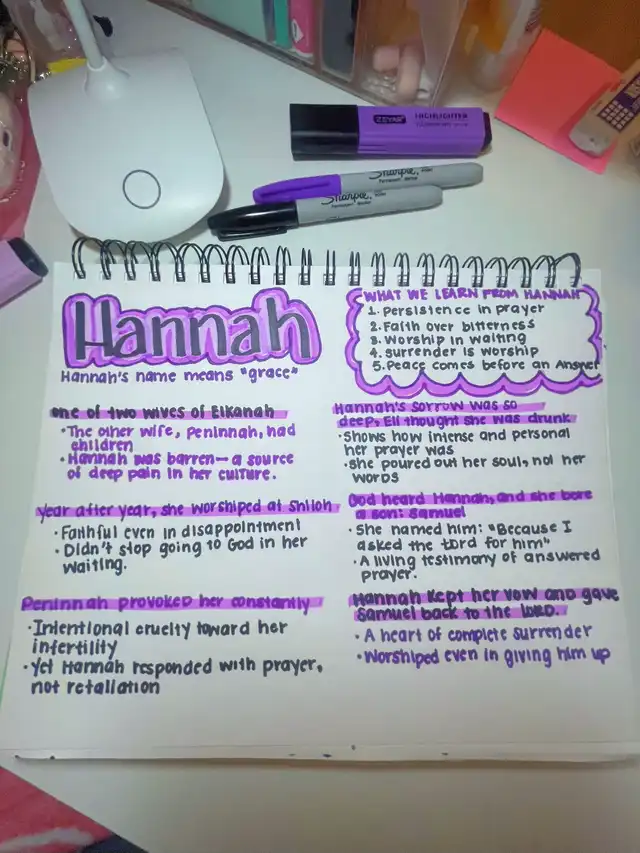 ZEYAR
HIGHLIGHTER
Sharpie
Sharpie
Hannah
Hannah's name means "grace"
one of two wives of Elkanah
• The other wife, Peninnah, had
children
• Hannah was barren— a source
of deep pain in her culture.
year after year, she worshiped at Shiloh
• Faithful even in disappointment
• Didn't stop going to God in her
waiting.
Peninnah provoked her constantly
• Intentional cruelty toward her
infertility
• Yet Hannah responded with prayer,
not retaliation
WHAT WE LEARN FROM HANNAH
1. Persistence in prayer
2. Faith over bitterness
3. Worship in waiting
4. Surrender is worship
5. Peace comes before an Answer
Hannah's sorrow was so
deep, Eli thought she was drunk
• Shows how intense and personal
her prayer was
• She poured out her soul, not her
words
God heard Hannah, and she bore
a son: Samuel
• She named him: "Because I
asked the Lord for him"
• A living testimony of answered
prayer.
Hannah kept her vow and gave
Samuel back to the LORD.
• A heart of complete surrender
• Worshiped even in giving him up